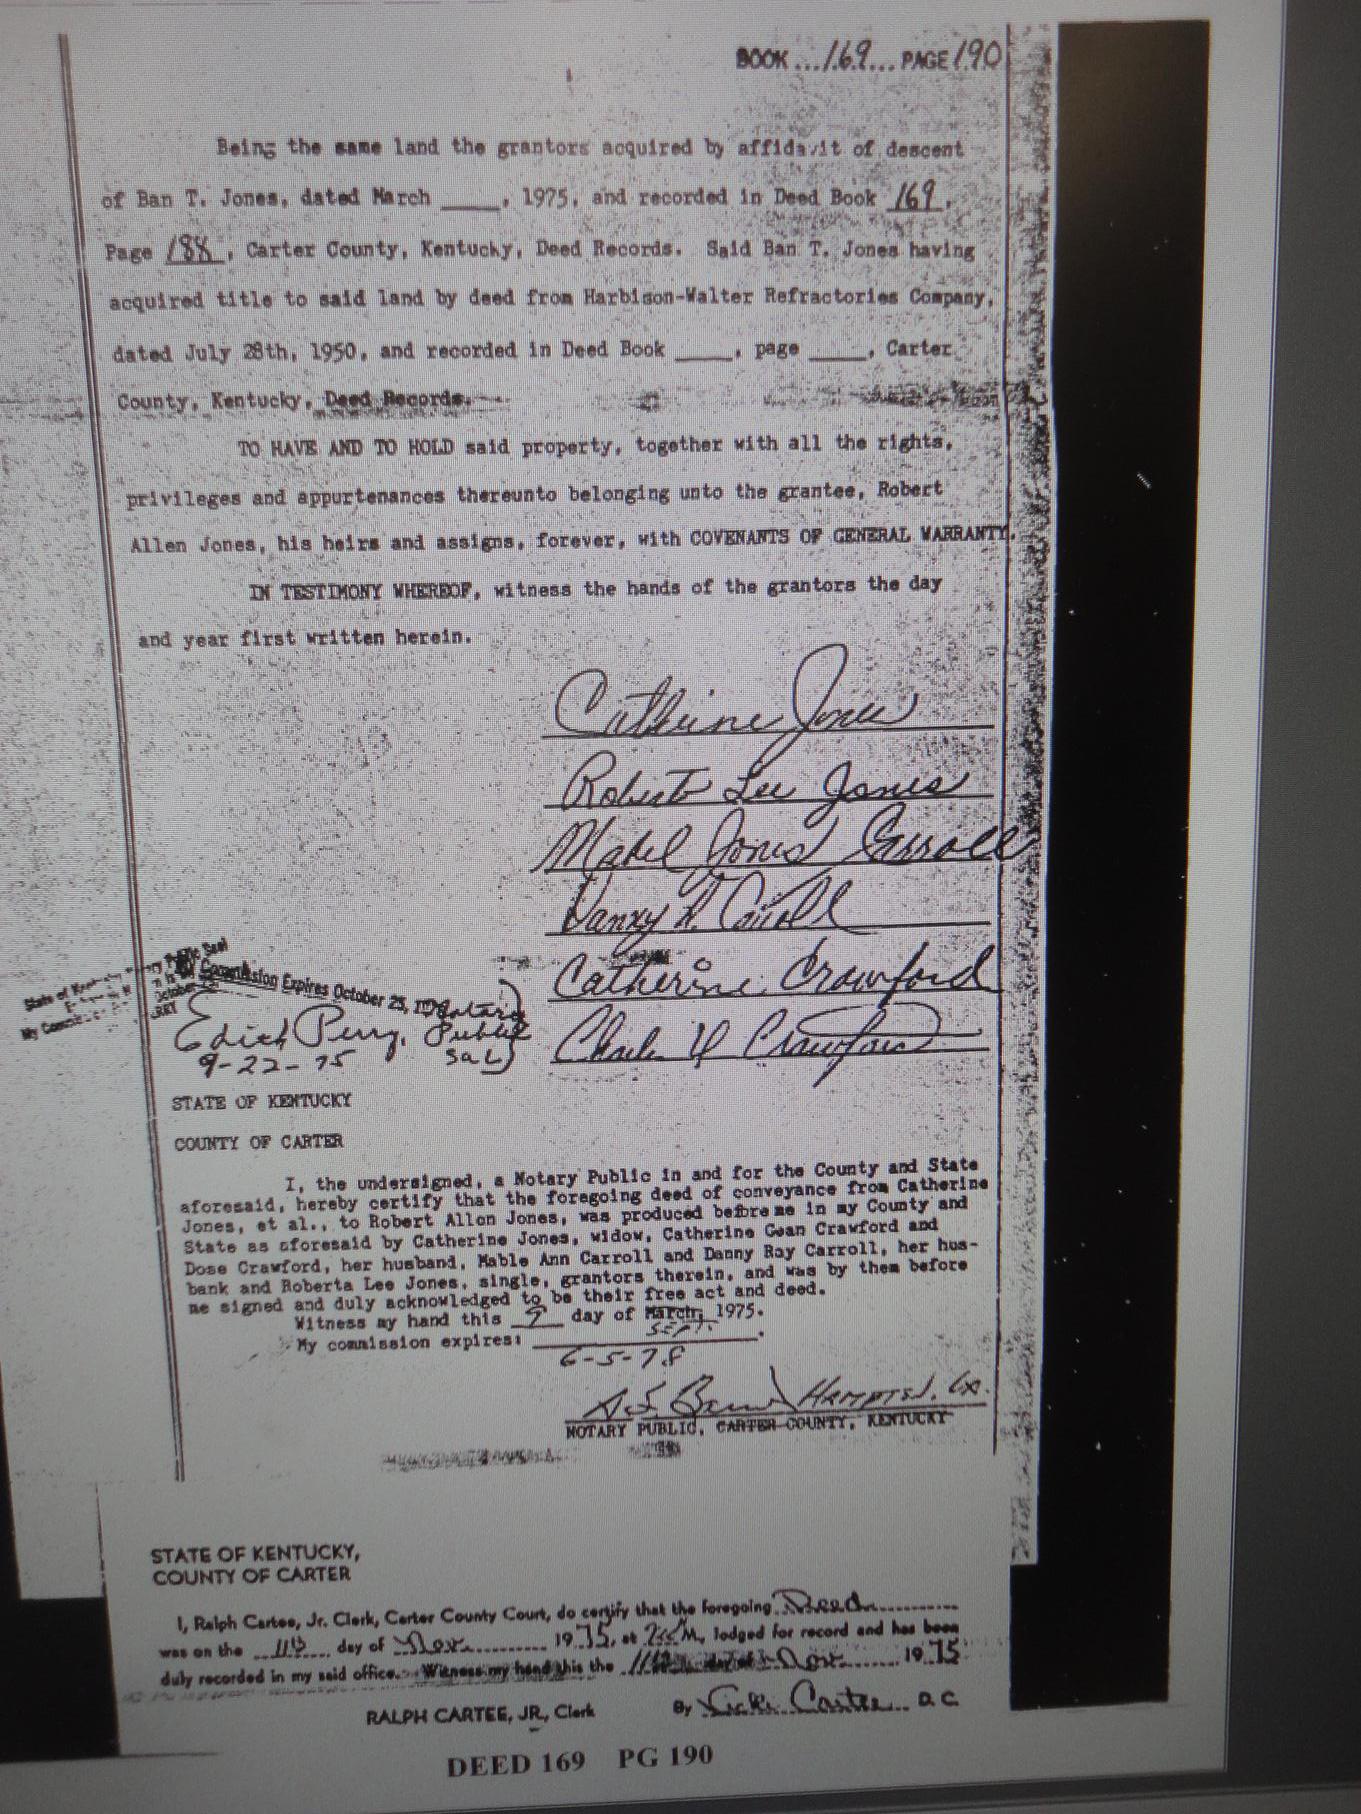 BOOK ...169... PAGE 190
Being the same land the grantors acquired by affidavit of descent
of Ban T. Jones, dated March ____, 1975, and recorded in Deed Book 169,
Page 188, Carter County, Kentucky, Deed Records. Said Ban T. Jones having
acquired title to said land by deed from Harbison-Walter Refractories Company,
dated July 28th, 1950, and recorded in Deed Book ____, page ____, Carter
County, Kentucky, Deed Records.
TO HAVE AND TO HOLD said property, together with all the rights,
privileges and appurtenances thereunto belonging unto the grantee, Robert
Allen Jones, his heirs and assigns, forever, with COVENANTS OF GENERAL WARRANTY.
IN TESTIMONY WHEREOF, witness the hands of the grantors the day
and year first written herein.
Catherine Jones
Roberta Lee Jones
Mabel Jones Carroll
Danny R. Carroll
Catherine Crawford
Crawford
Public Seal
State of
My
Commission Expires October 25,
Notary
Edith Perry, Public
9-22-75
STATE OF KENTUCKY
COUNTY OF CARTER
I, the undersigned, a Notary Public in and for the County and State
aforesaid, hereby certify that the foregoing deed of conveyance from Catherine
Jones, et al., to Robert Allen Jones, was produced before me in my County and
State as aforesaid by Catherine Jones, widow, Catherine Gean Crawford and
Dose Crawford, her husband, Mable Ann Carroll and Danny Ray Carroll, her hus-
bank and Roberta Lee Jones, single, grantors therein, and was by them before
me signed and duly acknowledged to be their free act and deed.
Witness my hand this 9 day of March, 1975.
SEPT.
My commission expires: ____.
6-5-78
NOTARY PUBLIC, CARTER COUNTY, KENTUCKY
STATE OF KENTUCKY,
COUNTY OF CARTER
I, Ralph Cartee, Jr. Clerk, Carter County Court, do certify that the foregoing Deed
was on the 11th day of Nov. 1975, at M, lodged for record and has been
duly recorded in my said office. Witness my hand this the 11th day of Nov. 1975
RALPH CARTEE, JR., Clerk By Vicki Cartee D.C.
DEED 169 PG 190